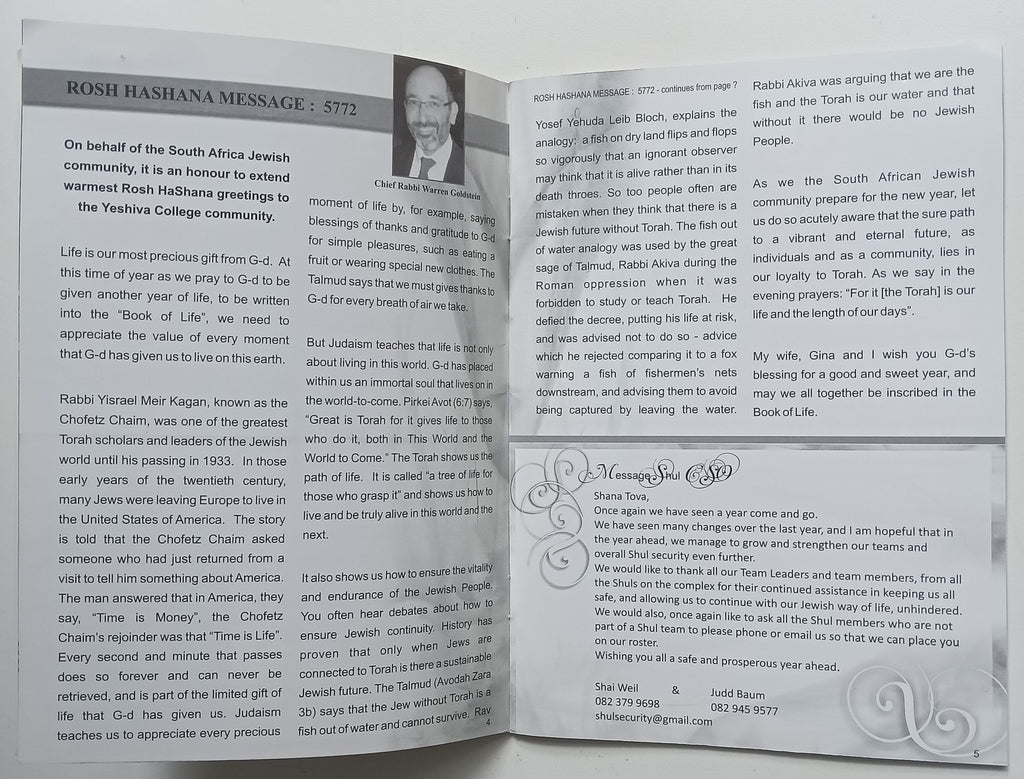 ROSH HASHANA MESSAGE : 5772
Chief Rabbi Warren Goldstein
On behalf of the South Africa Jewish
community, it is an honour to extend
warmest Rosh HaShana greetings to
the Yeshiva College community.
Life is our most precious gift from G-d. At
this time of year as we pray to G-d to be
given another year of life, to be written
into the “Book of Life”, we need to
appreciate the value of every moment
that G-d has given us to live on this earth.
Rabbi Yisrael Meir Kagan, known as the
Chofetz Chaim, was one of the greatest
Torah scholars and leaders of the Jewish
world until his passing in 1933. In those
early years of the twentieth century,
many Jews were leaving Europe to live in
the United States of America. The story
is told that the Chofetz Chaim asked
someone who had just returned from a
visit to tell him something about America.
The man answered that in America, they
say, “Time is Money”, the Chofetz
Chaim's rejoinder was that “Time is Life”.
Every second and minute that passes
does so forever and can never be
retrieved, and is part of the limited gift of
life that G-d has given us. Judaism
teaches us to appreciate every precious
moment of life by, for example, saying
blessings of thanks and gratitude to G-d
for simple pleasures, such as eating a
fruit or wearing special new clothes. The
Talmud says that we must gives thanks to
G-d for every breath of air we take.
But Judaism teaches that life is not only
about living in this world. G-d has placed
within us an immortal soul that lives on in
the world-to-come. Pirkei Avot (6:7) says,
“Great is Torah for it gives life to those
who do it, both in This World and the
World to Come.” The Torah shows us the
path of life. It is called “a tree of life for
those who grasp it” and shows us how to
live and be truly alive in this world and the
next.
It also shows us how to ensure the vitality
and endurance of the Jewish People.
You often hear debates about how to
ensure Jewish continuity. History has
proven that only when Jews are
connected to Torah is there a sustainable
Jewish future. The Talmud (Avodah Zara
3b) says that the Jew without Torah is a
fish out of water and cannot survive. Rav
4
ROSH HASHANA MESSAGE : 5772 - continues from page ?
Yosef Yehuda Leib Bloch, explains the
analogy: a fish on dry land flips and flops
so vigorously that an ignorant observer
may think that it is alive rather than in its
death throes. So too people often are
mistaken when they think that there is a
Jewish future without Torah. The fish out
of water analogy was used by the great
sage of Talmud, Rabbi Akiva during the
Roman oppression when it was
forbidden to study or teach Torah. He
defied the decree, putting his life at risk,
and was advised not to do so - advice
which he rejected comparing it to a fox
warning a fish of fishermen's nets
downstream, and advising them to avoid
being captured by leaving the water.
Rabbi Akiva was arguing that we are the
fish and the Torah is our water and that
without it there would be no Jewish
People.
As we the South African Jewish
community prepare for the new year, let
us do so acutely aware that the sure path
to a vibrant and eternal future, as
individuals and as a community, lies in
our loyalty to Torah. As we say in the
evening prayers: “For it [the Torah] is our
life and the length of our days”.
My wife, Gina and I wish you G-d's
blessing for a good and sweet year, and
may we all together be inscribed in the
Book of Life.
Message Shul CSO
Shana Tova,
Once again we have seen a year come and go.
We have seen many changes over the last year, and I am hopeful that in
the year ahead, we manage to grow and strengthen our teams and
overall Shul security even further.
We would like to thank all our Team Leaders and team members, from all
the Shuls on the complex for their continued assistance in keeping us all
safe, and allowing us to continue with our Jewish way of life, unhindered.
We would also, once again like to ask all the Shul members who are not
part of a Shul team to please phone or email us so that we can place you
on our roster.
Wishing you all a safe and prosperous year ahead.
Shai Weil & Judd Baum
082 379 9698 082 945 9577
shulsecurity@gmail.com
5